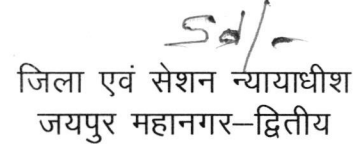 Sd/-
जिला एवं सेशन न्यायाधीश
जयपुर महानगर–द्वितीय